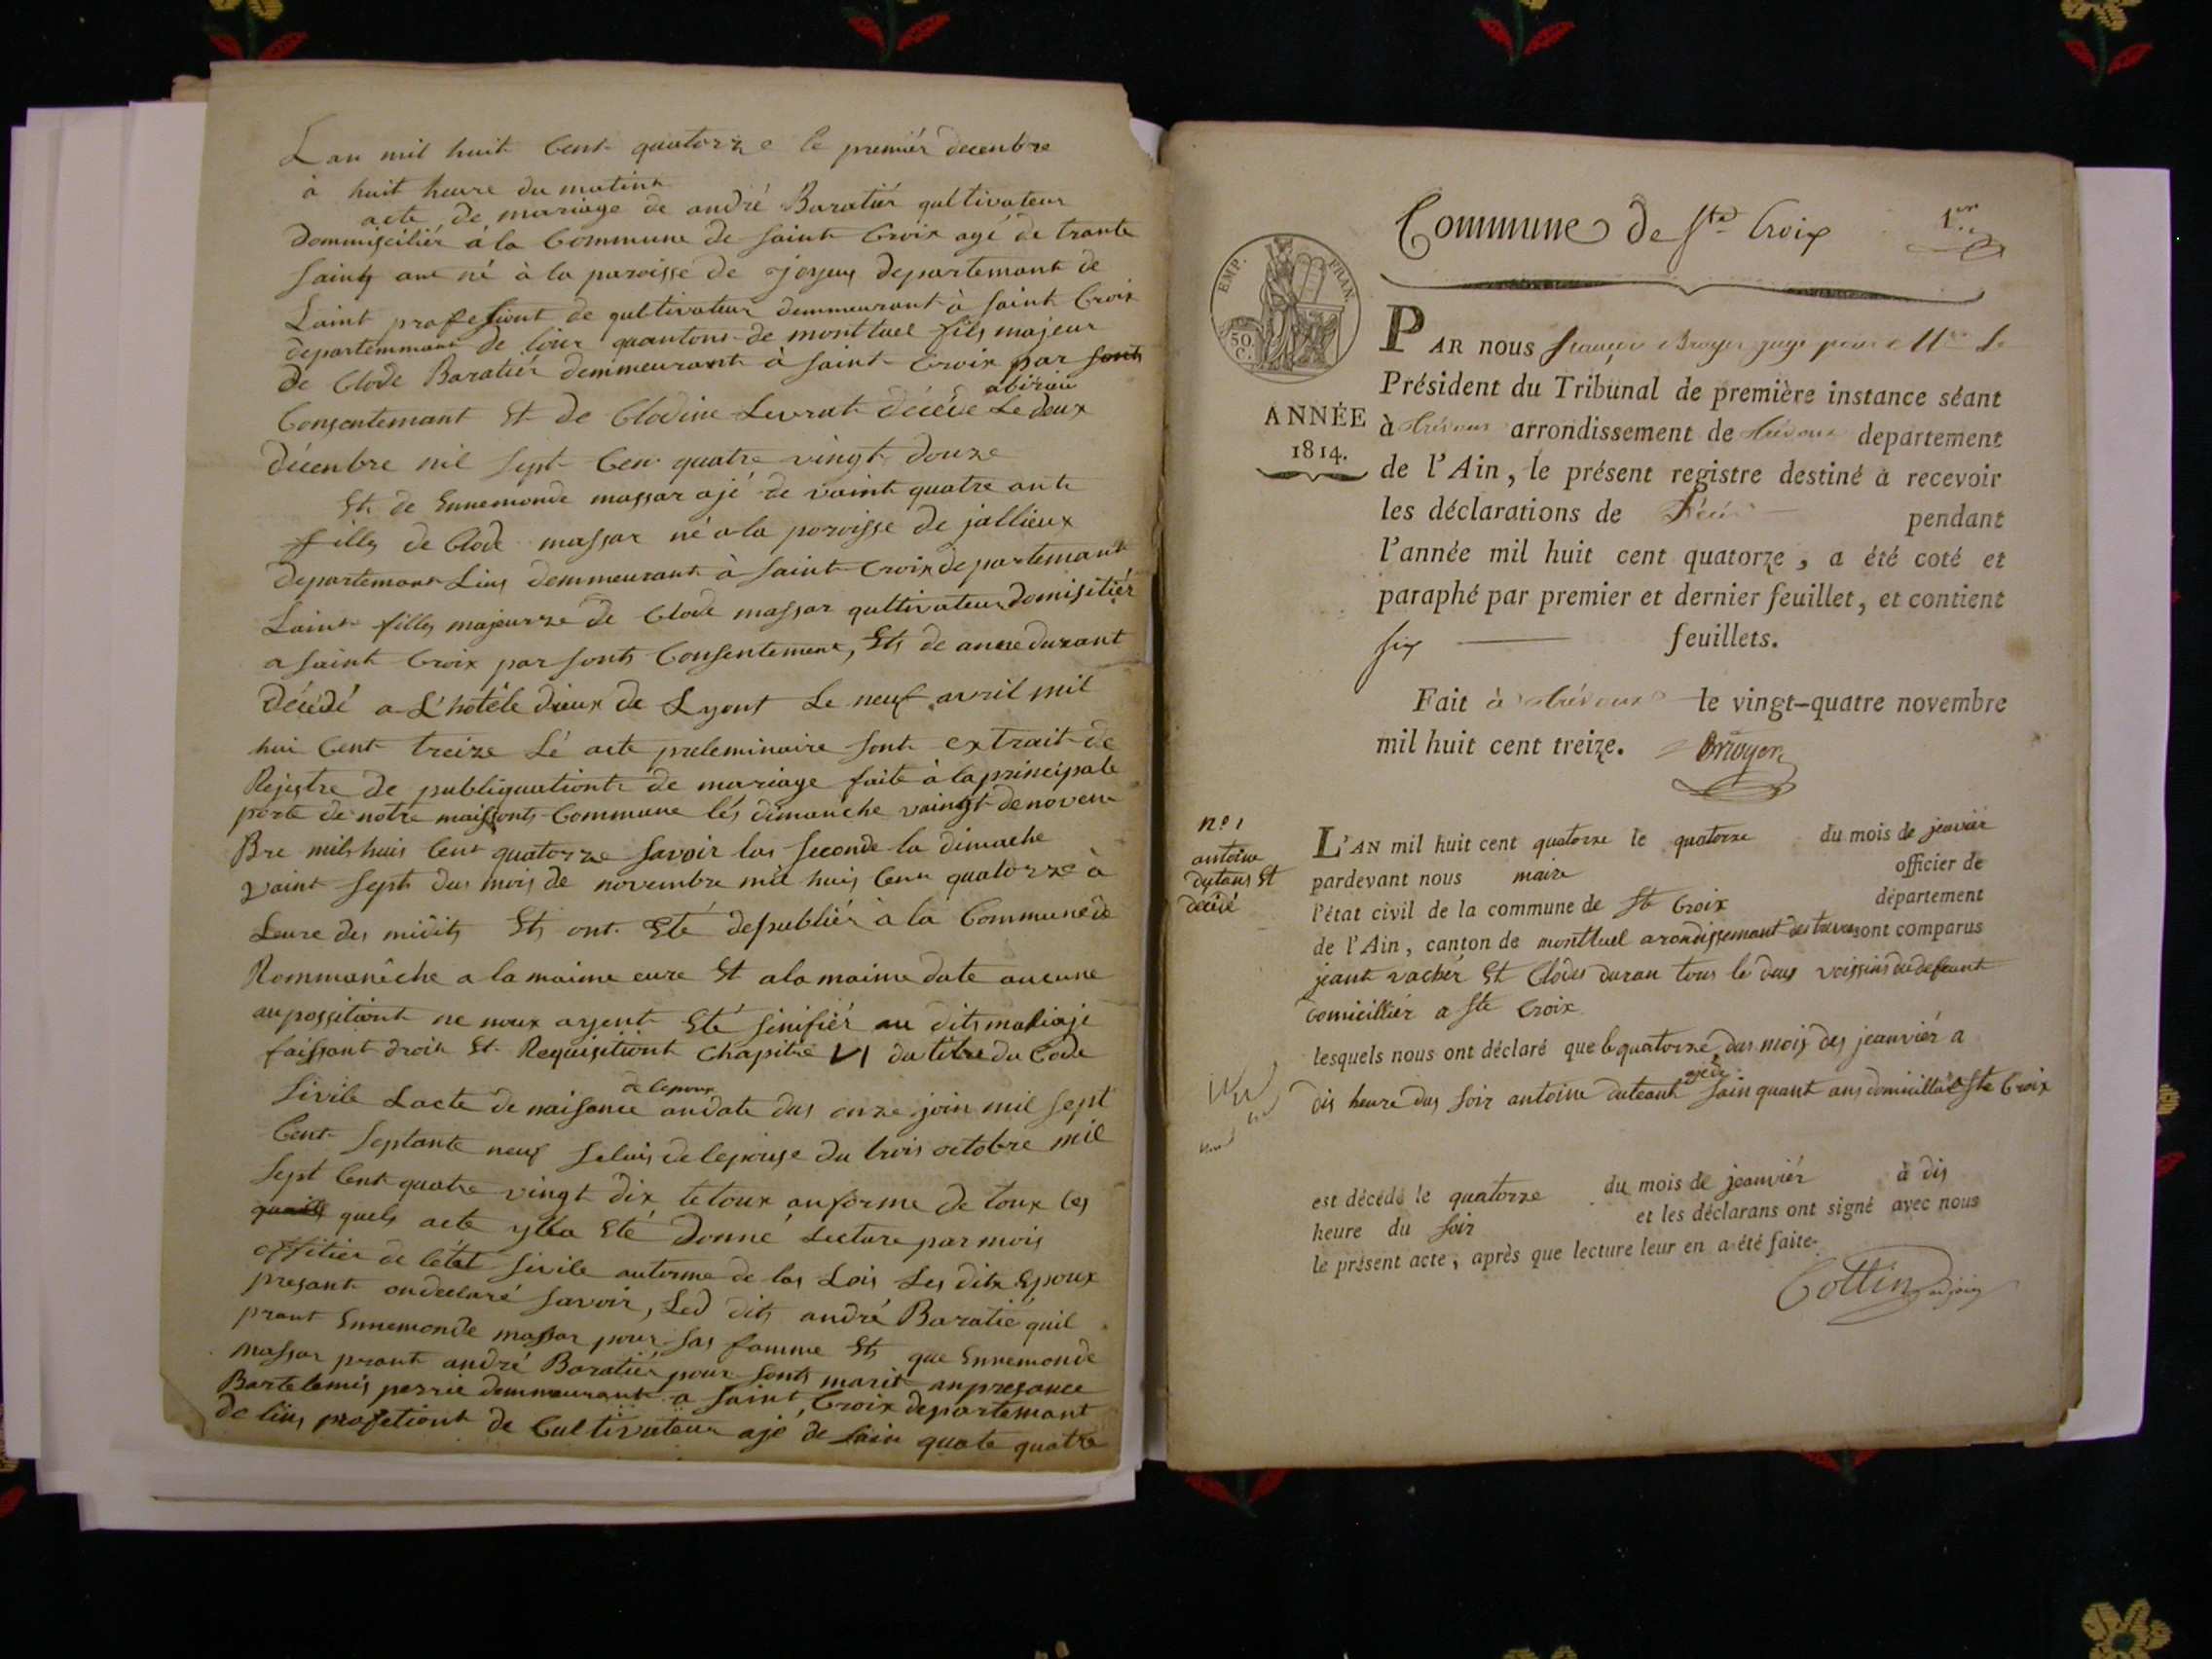 Lan mil huit Cent quatorze le premiér decenbre
à huit heure du matint
acte de mariage de andré Baratiér qultivateur
Dommisciliér á la Commune de saint Croix agé de trante
sainq ant né à la paroisse de joyeux departemant de
Laint profesiont de qultivateur demmeurant à saint Croix
departemmant de loin quantons de monttuel fils majeur
de Clode Baratiér demmeurant à saint Croix par sonts
Consentemant Et de Clodine Levrat décéde abirau Le doux
décenbre mil sept Cen quatre vingt douze
Et de Ennemonde massar ajé de vaint quatre ant
filly de Clode massar né a la poroisse de jallieux
departemant Liuy demmeurant à saint Croix departemant
Laint filly majeurre de Clode massar qultivateur domisitiér
a saint Croix par sonts Consentement, Ets de anne durant
décédé a L'hotéle dieux de Lyont Le neuf avril mil
hui Cent treize Lé acte preleminaire sont extrait de
Rejestre de publiquationt de mariage faite à la principale
porte de notre maissonts Commune lés dimanche vaingt de noven
Bre mils huis Cent quatorze savoir las seconde la dimache
vaint septs dus mois de novembre mil huis Cent quatorze à
Leure des midits Ets ont Eté depubliér à la Commune de
Rommanêche a la maime eure Et a la maime date aucune
aupossitiont ne noux ayent Eté sinifiér au dits mariaje
faissant droit Et Requisitiont Chapitre VI du titre du Code
Sivile Lacte de naisance de lepoux andate dus onze join mil sept
Cent septante neuf seluis de lepouse du trois octobre mil
sept Cent quatre vingt dix le toux anforme de toux les
quels acte ylla Eté donné Lecture par mois
offitier de létat sivile auterme de las Lois Les dits Epoux
presant ondeclaré savoir, Led dits andré Baratié quil
prant Ennemonde massar pour sas famme Ets que Ennemonde
massar prant andré Baratiér pour sonts marit anpresance
Bartelemis perrié demmeurant a saint Croix departemant
de liuy profetiont de Cultivateur ajé de sain quate quatre
Commune de Ste Croix 1er
EMP. FRAN.
50
C.
ANNÉE
1814.
PAR nous François Bruyer juge pour Mr Le
Président du Tribunal de première instance séant
à trévoux arrondissement de trévoux departement
de l'Ain, le présent registre destiné à recevoir
les déclarations de Décès pendant
l'année mil huit cent quatorze, a été coté et
paraphé par premier et dernier feuillet, et contient
six feuillets.
Fait à trévoux le vingt-quatre novembre
mil huit cent treize. Bruyer
no 1
antoine
dutans Et
décédé
L'AN mil huit cent quatorze le quatorze du mois de jeanviér
pardevant nous maire officier de
l'état civil de la commune de Ste Croix département
de l'Ain, canton de monttuel arondissemant des trevou sont comparus
jeant vachér Et Clodes duran tous le deus voissins du defeunt
domicilliér a Ste Croix
lesquels nous ont déclaré que le quatorze dus mois des jeanviér a
dis heure dus soir antoine duteant agé de sainquant ans domicillié a Ste Croix
est décédé le quatorze du mois de jeanviér à dis
heure du soir et les déclarans ont signé avec nous
le présent acte, après que lecture leur en a été faite.
Cottin adjoin